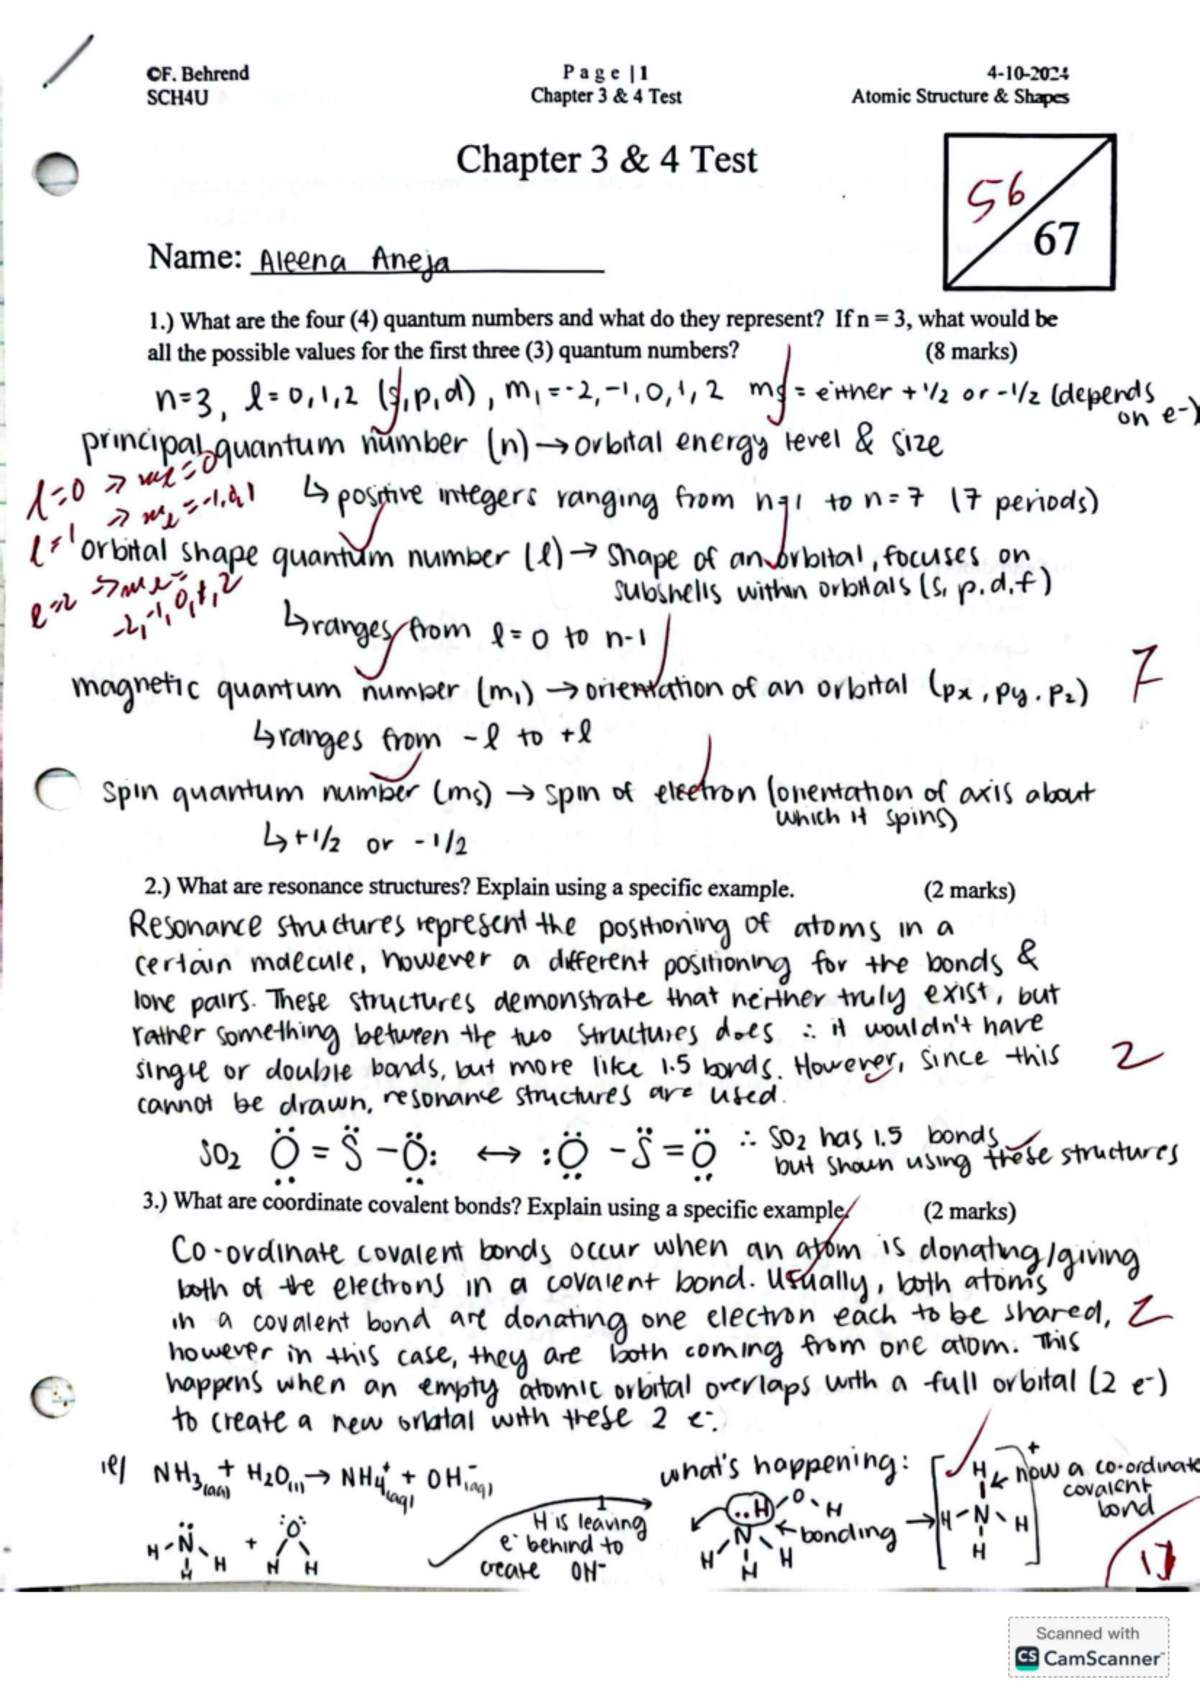 ©F. Behrend Page | 1 4-10-2024
SCH4U Chapter 3 & 4 Test Atomic Structure & Shapes
Chapter 3 & 4 Test
56/67
Name: Aleena Aneja
1.) What are the four (4) quantum numbers and what do they represent? If n = 3, what would be
all the possible values for the first three (3) quantum numbers? (8 marks)
n=3, l=0,1,2 (s,p,d), ml=-2,-1,0,1,2 ms = either +1/2 or -1/2 (depends
on e-)
principal quantum number (n) → orbital energy level & size
l=0 ⇒ ml=0
↳ positive integers ranging from n=1 to n=7 (7 periods)
l=1 ⇒ ml=-1,0,1
orbital shape quantum number (l) → shape of an orbital, focuses on
subshells within orbitals (s, p, d, f)
l=2 ⇒ ml=
-2,-1,0,1,2
↳ ranges from l=0 to n-1
magnetic quantum number (ml) → orientation of an orbital (px, py, pz) 7
↳ ranges from -l to +l
spin quantum number (ms) → spin of electron (orientation of axis about
which it spins)
↳ +1/2 or -1/2
2.) What are resonance structures? Explain using a specific example. (2 marks)
Resonance structures represent the positioning of atoms in a
certain molecule, however a different positioning for the bonds &
lone pairs. These structures demonstrate that neither truly exist, but
rather something between the two structures does ∴ it wouldn't have
single or double bonds, but more like 1.5 bonds. However, since this 2
cannot be drawn, resonance structures are used.
SO2 O=S-O: ↔ :O-S=O ∴ SO2 has 1.5 bonds
but shown using these structures
3.) What are coordinate covalent bonds? Explain using a specific example. (2 marks)
Co-ordinate covalent bonds occur when an atom is donating/giving
both of the electrons in a covalent bond. Usually, both atoms
in a covalent bond are donating one electron each to be shared, 2
however in this case, they are both coming from one atom. This
happens when an empty atomic orbital overlaps with a full orbital (2 e-)
to create a new orbital with these 2 e-.
ie/ NH3(aq) + H2O(l) → NH4+(aq) + OH-(aq)
what's happening:
now a co-ordinate
covalent
bond
H is leaving
e- behind to
create OH-
bonding
H-N-H H + O H H
N H H H H O H
H H-N-H H +
11
Scanned with
CS CamScanner